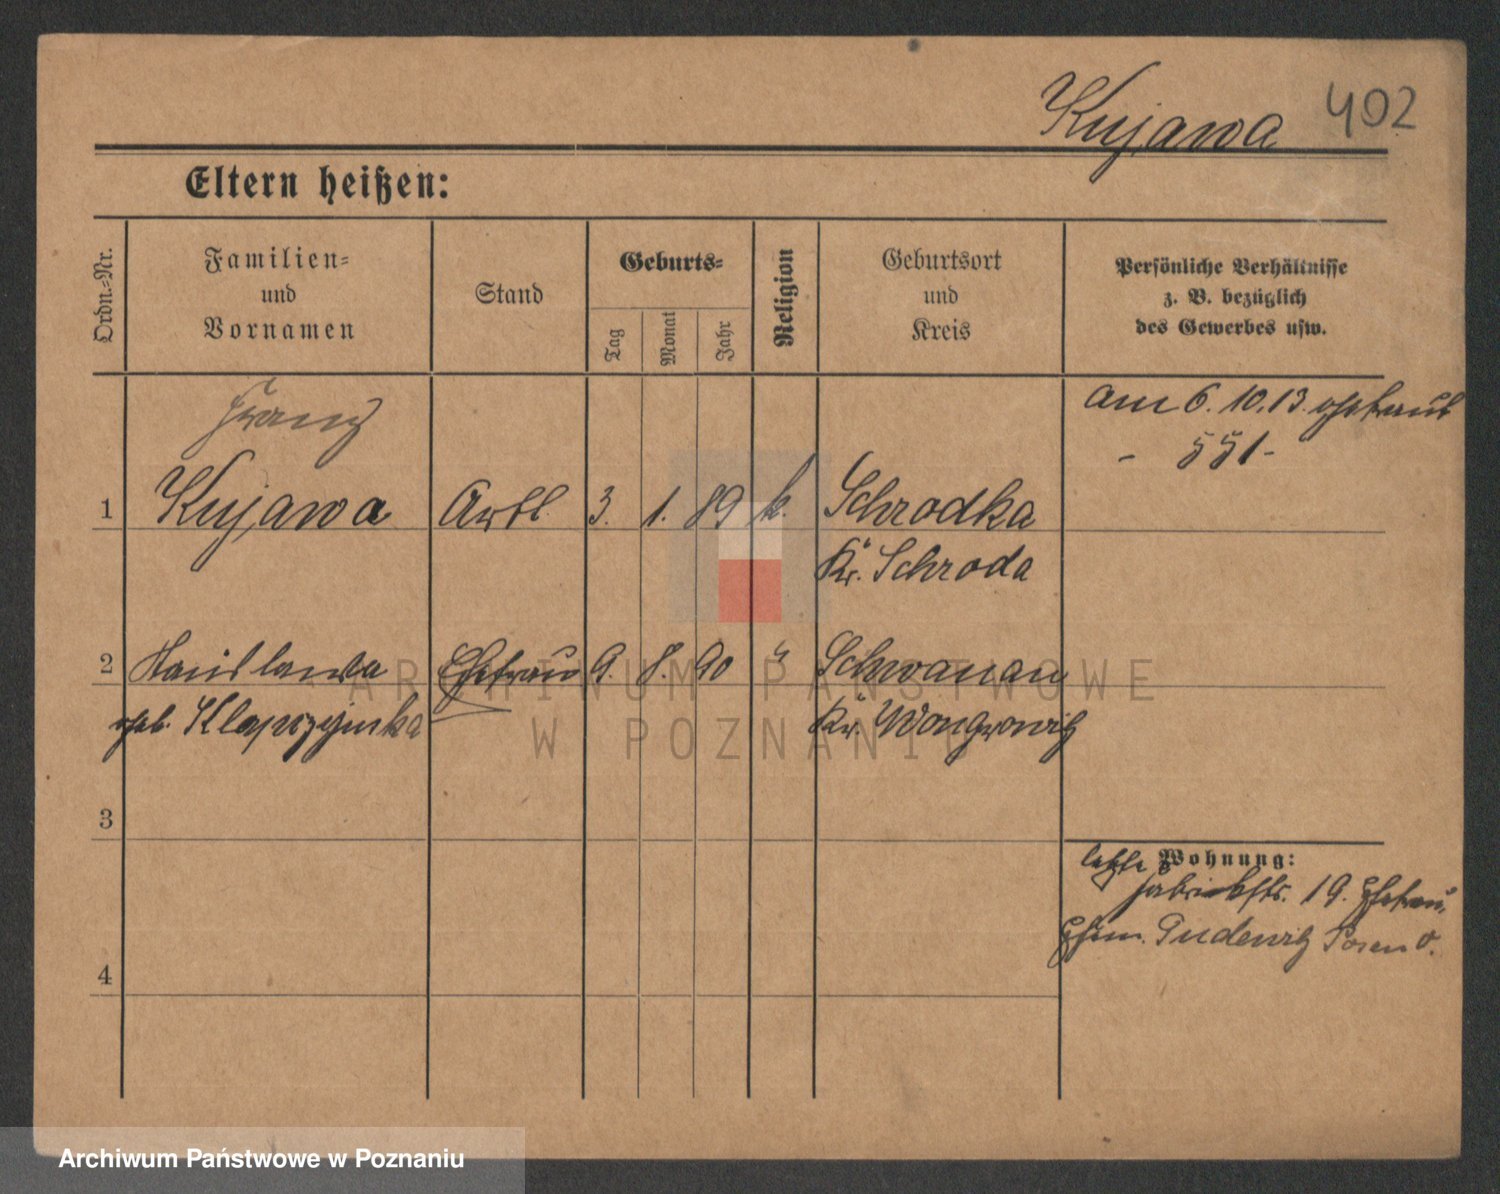 Kujawa 402
Eltern heißen:
Ordn.-Nr.
Familien-
und
Vornamen
Stand
Geburts-
Tag
Monat
Jahr
Religion
Geburtsort
und
Kreis
Persönliche Verhältnisse
z. B. bezüglich
des Gewerbes usw.
Franz
am 6. 10. 13. getraut
- 551-
1 Kujawa Arbl 3. 1. 89 k. Schrodka
Kr. Schroda
2 Stanislawa Ehefrau 9. 8. 90 " Schwanau
geb. Kr. Wongrowitz
3
letzte Wohnung:
Fabrikstr. 19.
Pudewitz Posen O.
4
ARCHIWUM PAŃSTWOWE
W POZNANIU
Archiwum Państwowe w Poznaniu